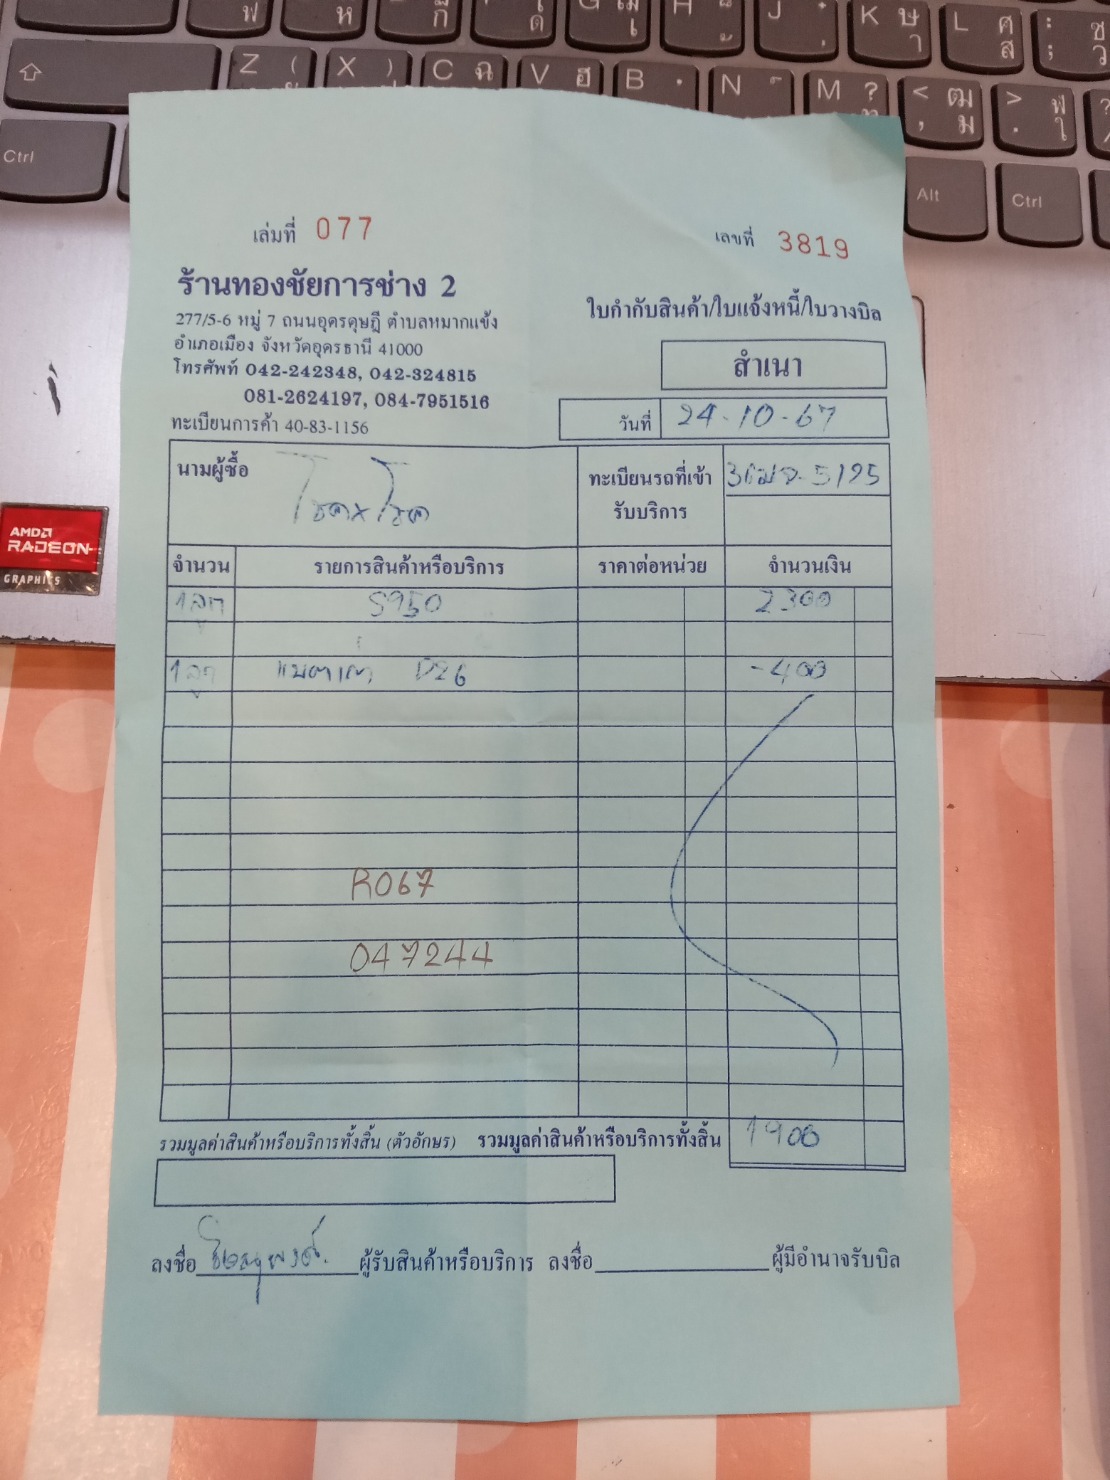 Z ( X ) C ฉ V ฮ B N M ?
K ษ า L ศ ส ; ซ ว
< ฒ , ม > ฬ . ใ
Ctrl
Alt
Ctrl
เล่มที่ 077
เลขที่ 3819
ร้านทองชัยการช่าง 2
277/5-6 หมู่ 7 ถนนอุดรดุษฎี ตำบลหมากแข้ง
อำเภอเมือง จังหวัดอุดรธานี 41000
โทรศัพท์ 042-242348, 042-324815
081-2624197, 084-7951516
ทะเบียนการค้า 40-83-1156
ใบกำกับสินค้า/ใบแจ้งหนี้/ใบวางบิล
สำเนา
วันที่ 24-10-67
นามผู้ซื้อ
ทะเบียนรถที่เข้ารับบริการ 5125
จำนวน รายการสินค้าหรือบริการ ราคาต่อหน่วย จำนวนเงิน
1 ลูก S950 2300
1 ลูก แบตเก่า D26 -400
R067
047244
รวมมูลค่าสินค้าหรือบริการทั้งสิ้น (ตัวอักษร) รวมมูลค่าสินค้าหรือบริการทั้งสิ้น 1900
ลงชื่อ ผู้รับสินค้าหรือบริการ ลงชื่อ ผู้มีอำนาจรับบิล
AMD
RADEON
GRAPHICS